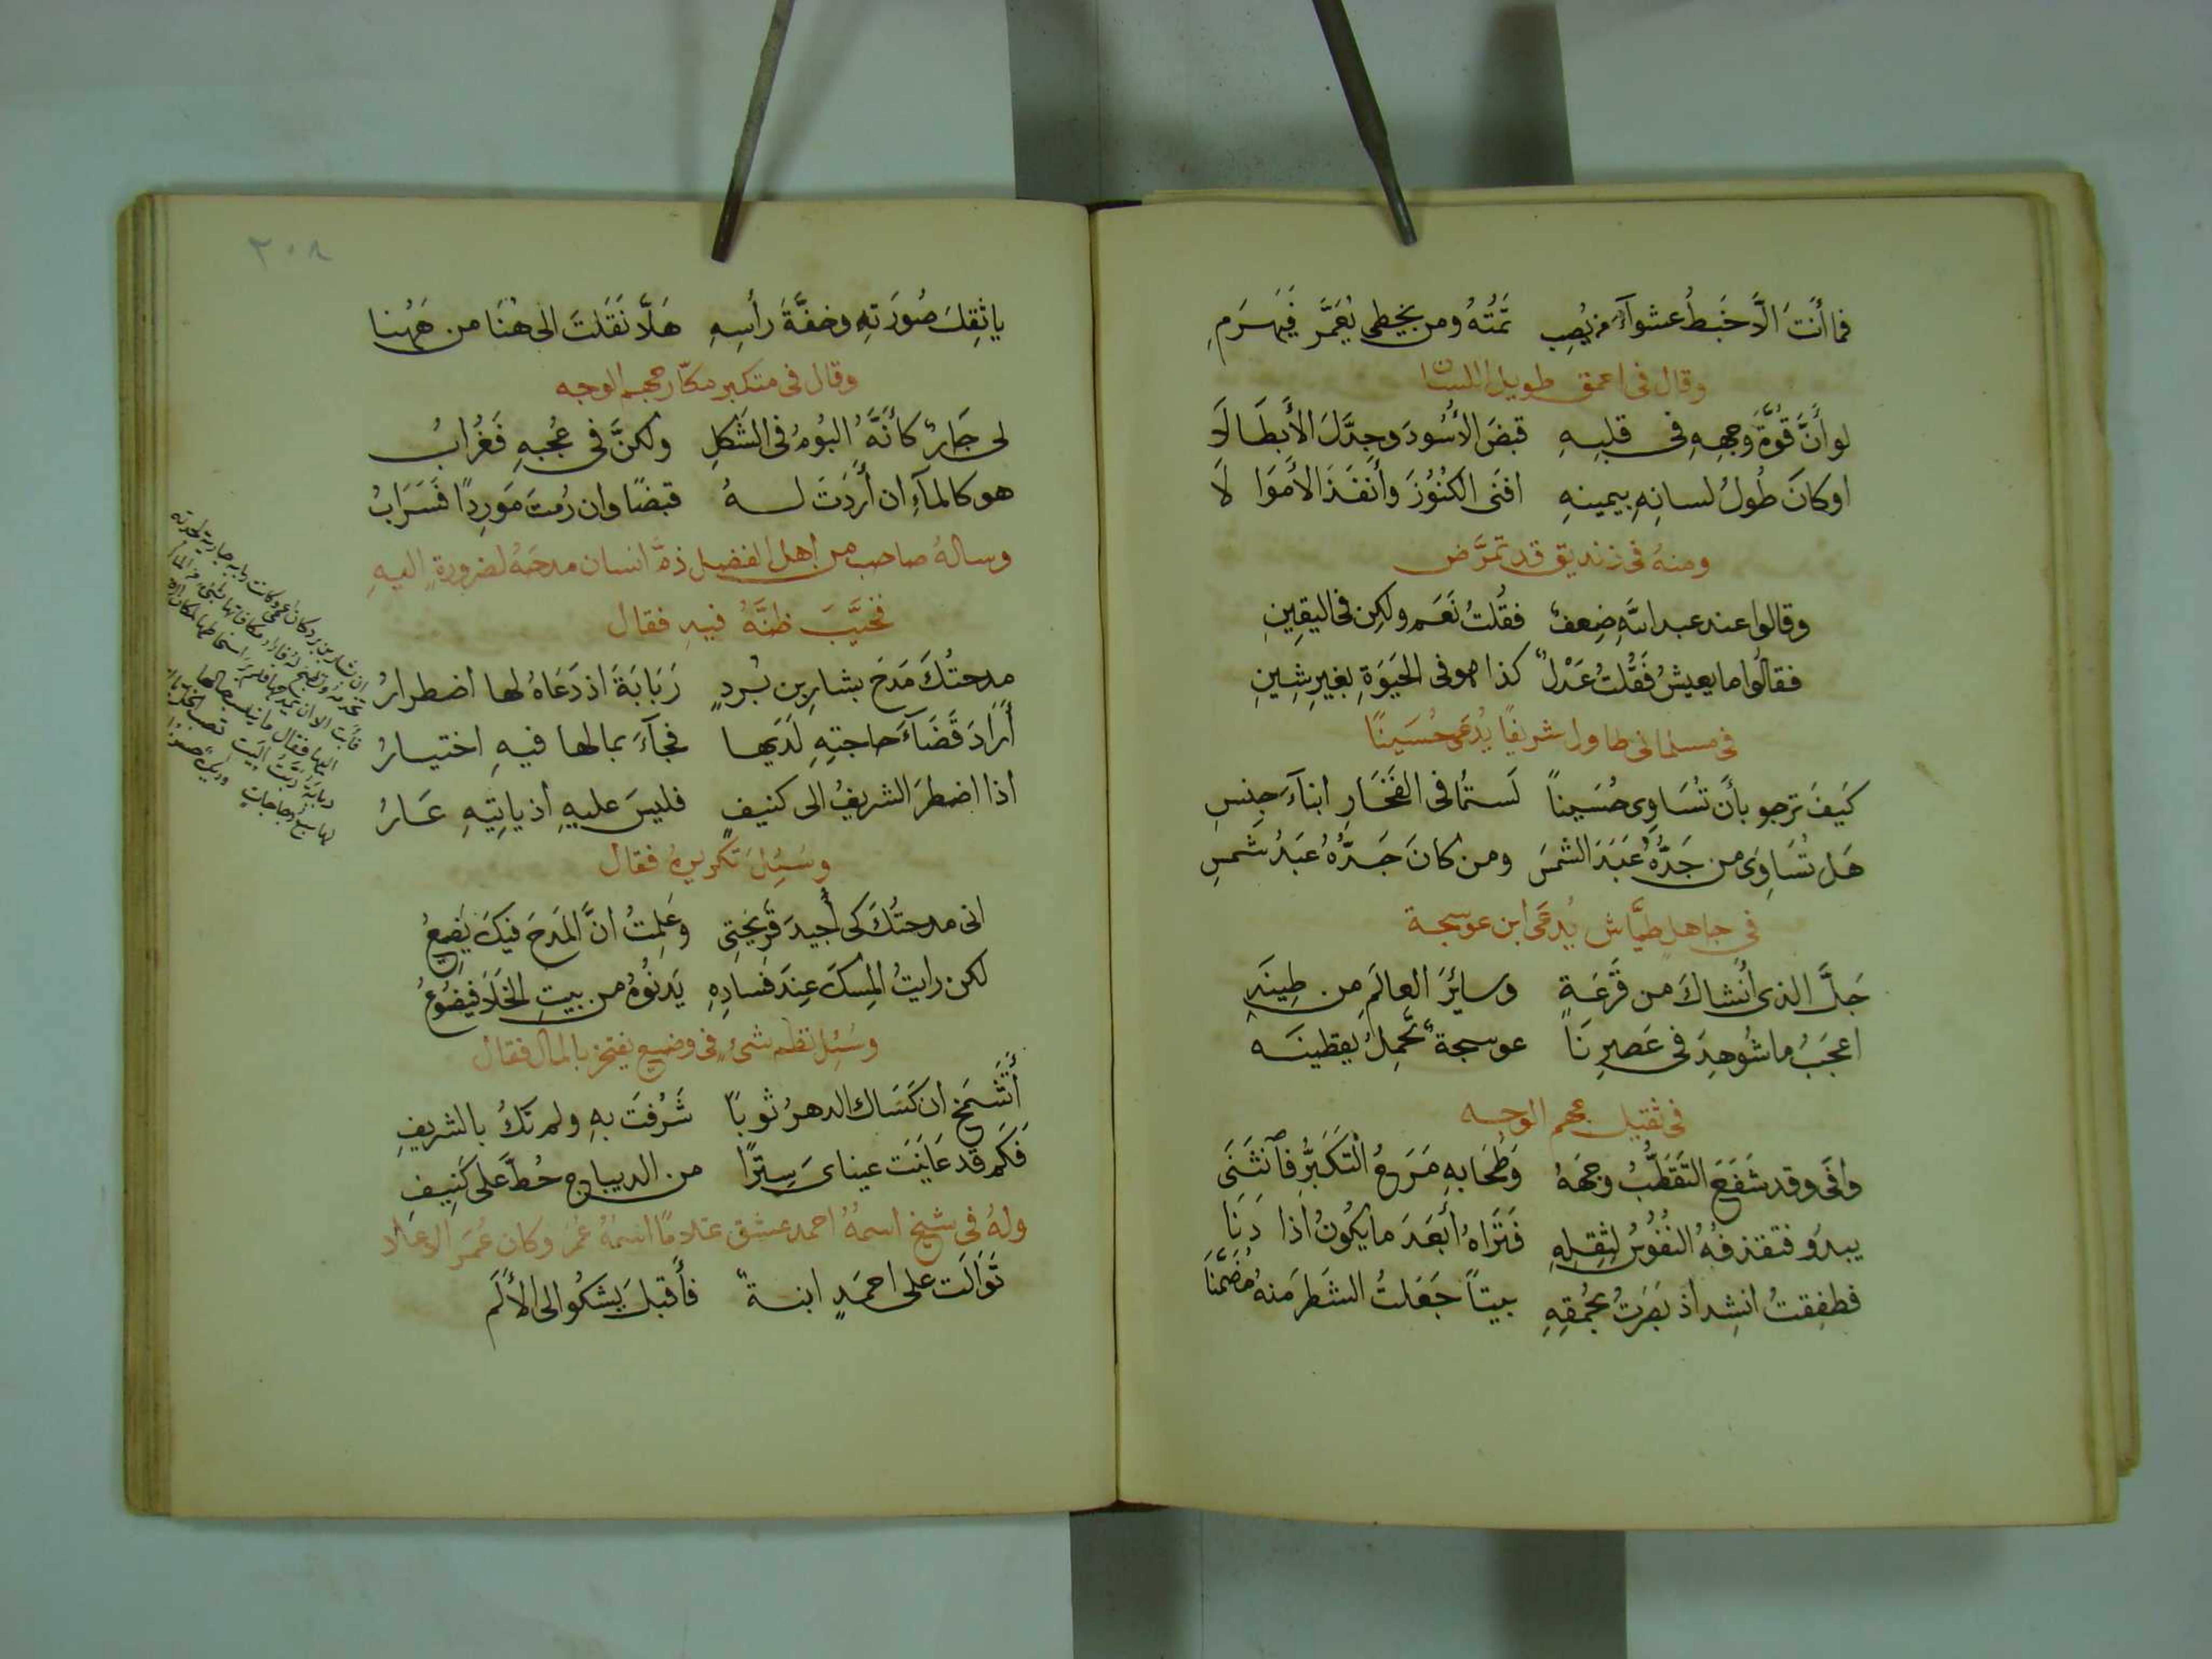 فما أنتَ الَّا خَبطُ عشوآءَ من يُصِب تمُتهُ ومن يخطي يُعَمَّر فَيَهرَمِ
وقال في احمق طويل اللسان
لو أنَّ قوَّةَ وجههِ في قلبِهِ قبضَ الأسُودَ وجدَّلَ الأبطَالَا
او كانَ طُولُ لسانِهِ بيمينهِ افنى الكنُوزَ وأَنفَذَ الأموَالَا
ومنهُ في زنديق قد تمرَّض
وقالوا عند عبد اللهِ ضِعفٌ فقُلتُ نَعَم ولكِن في اليقِينِ
فقالُوا ما يعيشُ فَقُلتُ عَدْلٌ كذا هو في الحَيوةِ بغيرِ شِينِ
في مسلماني طاول شريفًا يُدعَى حُسَينًا
كَيفَ ترجو بأَن تُسَاوِى حُسَيناً لَستُما في الفَخَارِ ابنآءَ جِنسِ
هَل تُسَاوِى من جَدُّهُ عَبَدَ الشمسَ ومن كانَ جَدُّهُ عَبدُ شَمسِ
في جاهلٍ طيَّاش يُدعَى ابن عوسجة
جَلَّ الذي أنشاكَ من قَرعَةٍ وسايئرَ العالَمِ من طِينَه
اعجَبُ ما شُوهِدَ في عَصرِنَا عوسجةٌ تحمِلُ يقطينَه
في ثقيل جهم الوجه
وافَى وقد شَفَعَ التَقَطُّبُ وجهَهُ وَطَحَا بهِ مَرَحُ التَكَبُّرِ فَانثَنَى
يبدو فتقذفُهُ النُفُوسُ لِثِقلِهِ فَتَرَاهُ أَبعَدَ ما يكُونُ اذا دَنَا
فطفِقتُ انشِد اذ بَصَرتُ بحُمقِهِ بيتاً جَعَلتُ الشطرَ منهُ مُضَمَّنَا
٢٠٨
يا ثِقلَ صُورَتهِ وخفَّةَ رأسِهِ هَلَّا نَقَلتَ الى هُنَا من هَهُنا
وقال في متكبر مكّار جهم الوجه
لي جَارٌ كأنَّهُ البُومُ في الشَكلِ ولكنَّ في عُجبهِ فَغُرابُ
هو كالمآءِ ان أرَدتَ لهُ قبضًا وان رُمتَ مَورِدًا فَسَرَابُ
وسالهُ صاحب من اهل الفضل ذمَّ انسان مدحَهُ لضرورةٍ اليهِ
فخيَّبَ ظنَّهُ فيهِ فقال
مدحتُكَ مَدحَ بشارِ بن بُردٍ رَبَابَةَ اذ دَعَاهُ لها اضطرارُ
أَرَادَ قَضَآءَ حاجتِهِ لَدَيها فجآءَ بما لها فيهِ اختيارُ
اذا اضطرَ الشريفُ الى كنيفٍ فليسَ عليهِ اذ ياتِيهِ عَارُ
وسُئِلَ تكريرهُ فقال
اني مدحتُكَ كي أُجيدَ قَرِيحَتِي وعَلِمتُ انَّ المَدحَ فيكَ يَضِيعُ
لكن رايتُ المِسكَ عِندَ فَسادِهِ يَدنُوهُ من بيتِ الخَلَا فيضُوعُ
وسُئِل نظم شيءٍ في وضيع يفتخر بالمال فقال
أَتَشمَخُ ان كَسَاك الدهرُ ثوباً شَرُفتَ بهِ ولم تَكُ بالشريفِ
فَكَم قد عَايَنَت عيناىَ سِترًا من الديباج حُطَّ على كَنِيفِ
ولهُ في شيخ اسمهُ احمد عشق غلامًا اسمُهُ عُمَر وكان عُمَر الاعلاد
تَوَالَت على احمَدٍ ابنةٌ فأقبلَ يشكُو الى الألَم
ان بشار بن برد كان اعمى وكانت رابه جارية
اليها فقال
ربابةُ رَبّةُ البَيتِ تصب الخل
لها سبعُ دجاجاتٍ وديكٌ